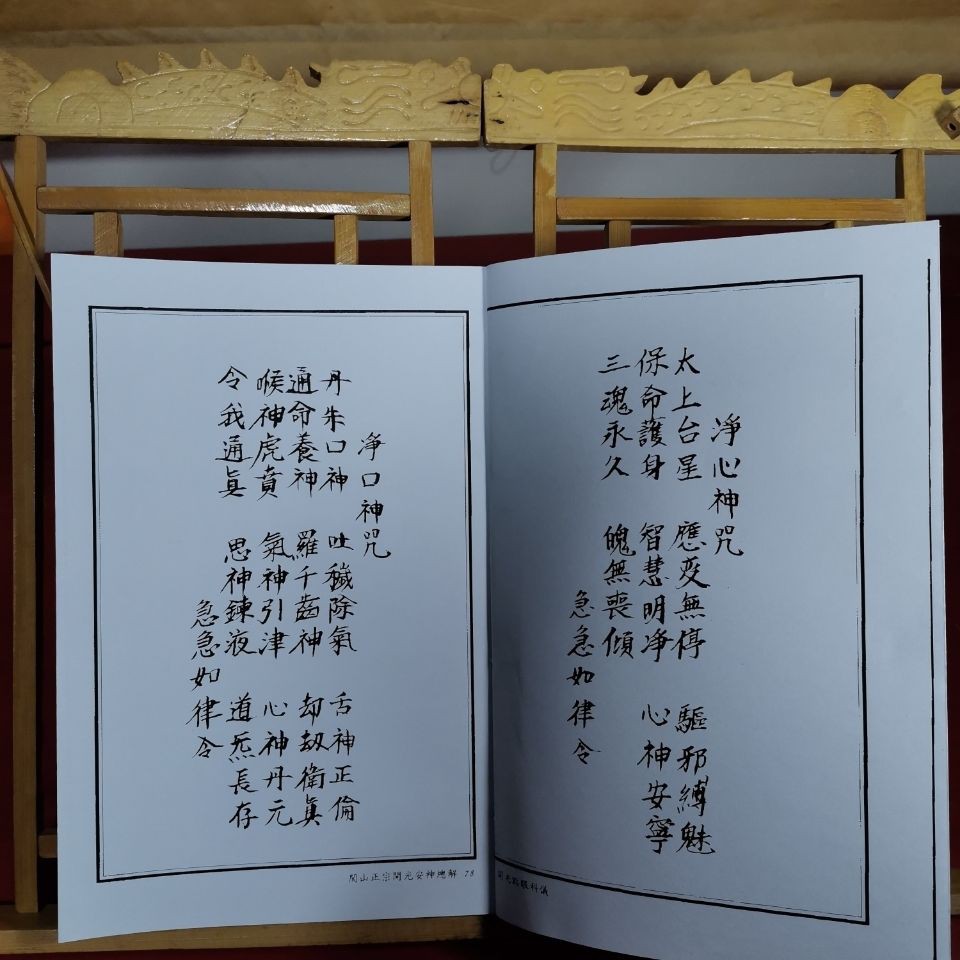 淨心神咒
太上台星 應变無停 驅邪縛魅
保命護身 智慧明淨 心神安寧
三魂永久 魄無喪傾
急急如律令
開光點眼科儀
淨口神咒
丹朱口神 吐穢除氣 舌神正倫
通命養神 羅千齒神 却劾衛真
喉神虎賁 氣神引津 心神丹元
令我通眞 思神鍊液 道炁長存
急急如律令
閭山正宗開光安神總解 78